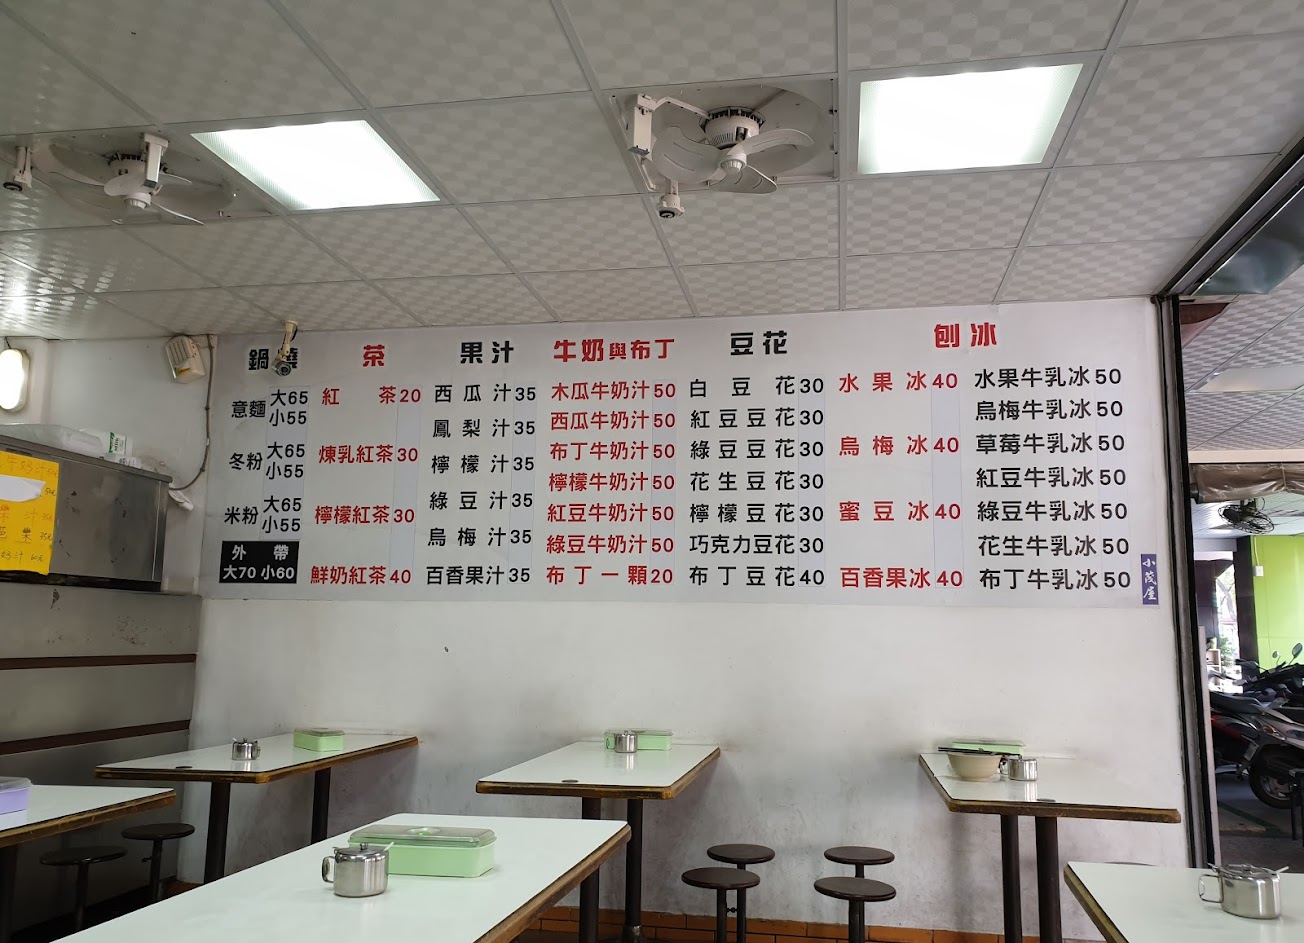 鍋燒
意麵 大65
小55
冬粉 大65
小55
米粉 大65
小55
外帶
大70 小60
茶
紅茶20
煉乳紅茶30
檸檬紅茶30
鮮奶紅茶40
果汁
西瓜汁35
鳳梨汁35
檸檬汁35
綠豆汁35
烏梅汁35
百香果汁35
牛奶與布丁
木瓜牛奶汁50
西瓜牛奶汁50
布丁牛奶汁50
檸檬牛奶汁50
紅豆牛奶汁50
綠豆牛奶汁50
布丁一顆20
豆花
白豆花30
紅豆豆花30
綠豆豆花30
花生豆花30
檸檬豆花30
巧克力豆花30
布丁豆花40
刨冰
水果冰40
烏梅冰40
蜜豆冰40
百香果冰40
水果牛乳冰50
烏梅牛乳冰50
草莓牛乳冰50
紅豆牛乳冰50
綠豆牛乳冰50
花生牛乳冰50
布丁牛乳冰50
小茂屋